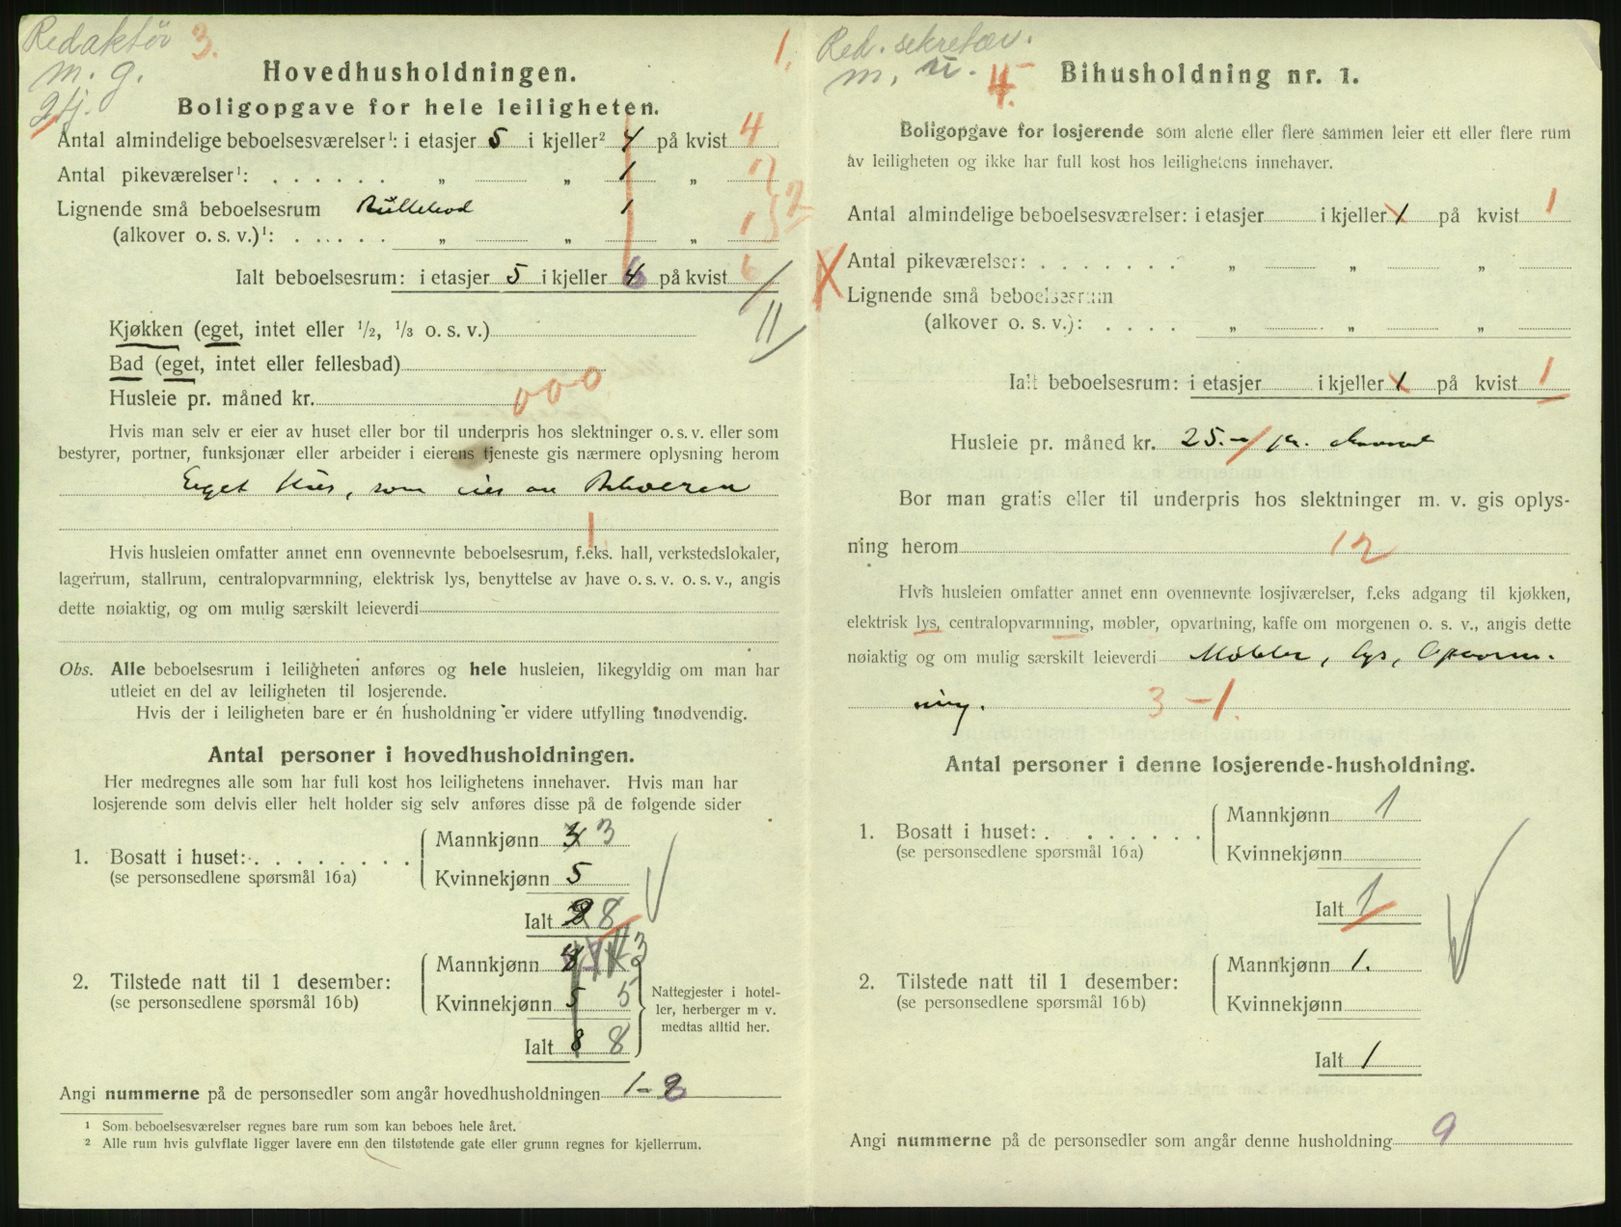 Redaktör 3.
m. g.
2 tj.
1.
Hovedhusholdningen.
Boligopgave for hele leiligheten.
Antal almindelige beboelsesværelser¹: i etasjer 5 i kjeller² 4 på kvist 4
Antal pikeværelser¹: . . . . . . „ „ 1 „ 1
Lignende små beboelsesrum 1 2
(alkover o. s. v.)¹: . . . . . . „ „ „ 1
Ialt beboelsesrum: i etasjer 5 i kjeller 6 på kvist 6
11
Kjøkken (eget, intet eller 1/2, 1/3 o. s. v.)
Bad (eget, intet eller fellesbad)
Husleie pr. måned kr. 000
Hvis man selv er eier av huset eller bor til underpris hos slektninger o. s. v. eller som
bestyrer, portner, funksjonær eller arbeider i eierens tjeneste gis nærmere oplysning herom
Eget Hus, som eies av
1.
Hvis husleien omfatter annet enn ovennevnte beboelsesrum, f.eks. hall, verkstedslokaler,
lagerrum, stallrum, centralopvarmning, elektrisk lys, benyttelse av have o. s. v. o. s. v., angis
dette nøiaktig, og om mulig særskilt leieverdi
Obs. Alle beboelsesrum i leiligheten anføres og hele husleien, likegyldig om man har
utleiet en del av leiligheten til losjerende.
Hvis der i leiligheten bare er én husholdning er videre utfylling unødvendig.
Antal personer i hovedhusholdningen.
Her medregnes alle som har full kost hos leilighetens innehaver. Hvis man har
losjerende som delvis eller helt holder sig selv anføres disse på de følgende sider
Mannkjønn 3 3
1. Bosatt i huset: . . . . . . . .
(se personsedlene spørsmål 16a)
Kvinnekjønn 5
Ialt 8 8
Mannkjønn 3
2. Tilstede natt til 1 desember:
(se personsedlene spørsmål 16b)
Kvinnekjønn 5 5
Ialt 8 8
Nattegjester i hotel-
ler, herberger m v.
medtas alltid her.
Angi nummerne på de personsedler som angår hovedhusholdningen 1-8
¹ Som beboelsesværelser regnes bare rum som kan beboes hele året.
² Alle rum hvis gulvflate ligger lavere enn den tilstøtende gate eller grunn regnes for kjellerrum.
Red. sekretær.
m. u. 4.
Bihusholdning nr. 1.
Boligopgave for losjerende som alene eller flere sammen leier ett eller flere rum
av leiligheten og ikke har full kost hos leilighetens innehaver.
Antal almindelige beboelsesværelser: i etasjer i kjeller 1 på kvist 1
Antal pikeværelser: . . . . . . . „ „ „
Lignende små beboelsesrum
(alkover o. s. v.): . . . . „ „ „
Ialt beboelsesrum: i etasjer i kjeller 1 på kvist 1
Husleie pr. måned kr. 25.- pr. Maaned
Bor man gratis eller til underpris hos slektninger m. v. gis oplys-
ning herom 12
Hvis husleien omfatter annet enn ovennevnte losjiværelser, f.eks adgang til kjøkken,
elektrisk lys, centralopvarmning, møbler, opvartning, kaffe om morgenen o. s. v., angis dette
nøiaktig og om mulig særskilt leieverdi Møbler, lys, Opvarm-
ning. 3-1.
Antal personer i denne losjerende-husholdning.
Mannkjønn 1
1. Bosatt i huset: . . . . . . . .
(se personsedlene spørsmål 16a)
Kvinnekjønn
Ialt 1
Mannkjønn 1.
2. Tilstede natt til 1 desember:
(se personsedlene spørsmål 16b)
Kvinnekjønn
Ialt 1
Angi nummerne på de personsedler som angår denne husholdning 9